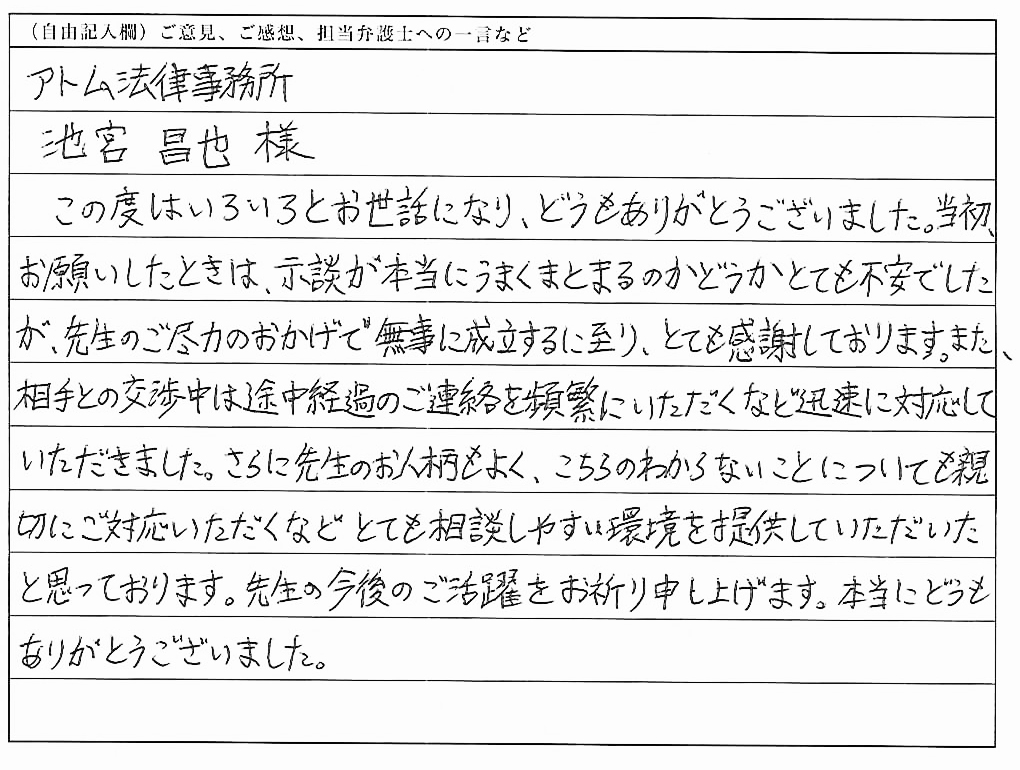 (自由記入欄)ご意見、ご感想、担当弁護士への一言など
アトム法律事務所
池宮 昌也 様
この度はいろいろとお世話になり、どうもありがとうございました。当初、
お願いしたときは、示談が本当にうまくまとまるのかどうかとても不安でした
が、先生のご尽力のおかげで無事に成立するに至り、とても感謝しております。また、
相手との交渉中は途中経過のご連絡を頻繁にいただくなど迅速に対応して
いただきました。さらに先生のお人柄もよく、こちらのわからないことについても親
切にご対応いただくなどとても相談しやすい環境を提供していただいた
と思っております。先生の今後のご活躍をお祈り申し上げます。本当にどうも
ありがとうございました。